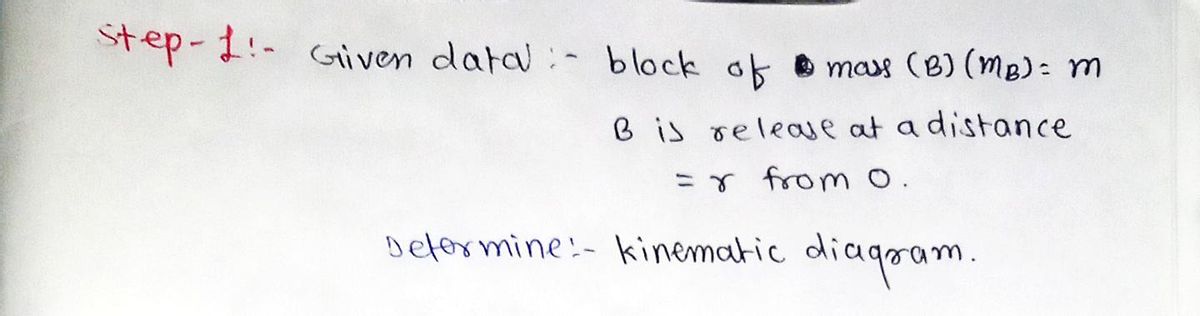 Step-1:- Given data :- block of mass (B) (mB) = m
B is release at a distance
= r from O.
Determine:- kinematic diagram.